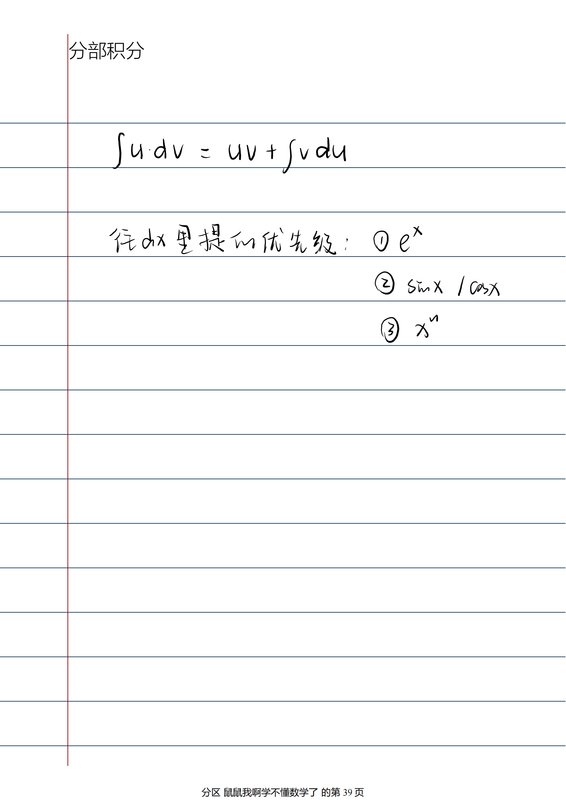 分部积分
∫u·dv = uv + ∫vdu
往dx里提的优先级: ① eˣ
② sinx / cosx
③ xⁿ
分区 鼠鼠我啊学不懂数学了 的第 39 页